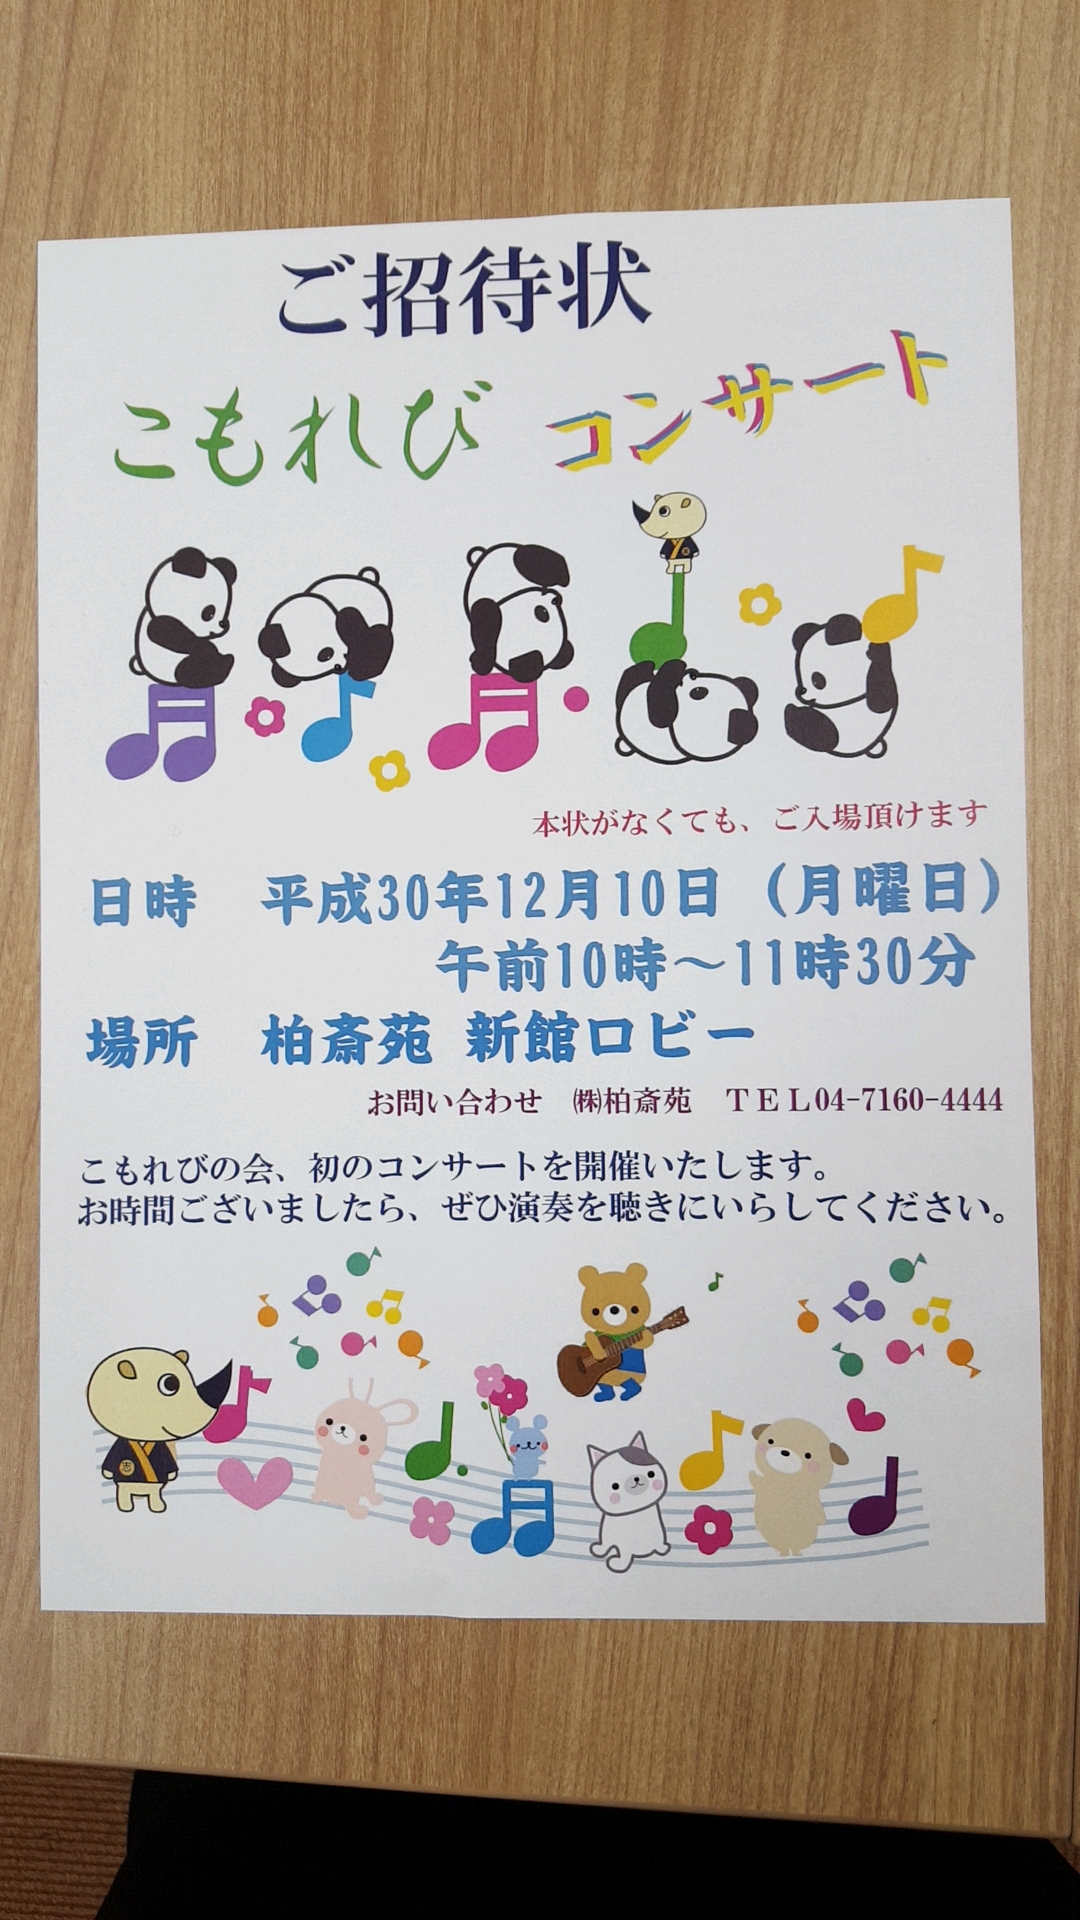 ご招待状
こもれび コンサート
本状がなくても、ご入場頂けます
日時 平成30年12月10日（月曜日）
午前10時～11時30分
場所 柏斎苑 新館ロビー
お問い合わせ ㈱柏斎苑 ＴＥＬ04-7160-4444
こもれびの会、初のコンサートを開催いたします。
お時間ございましたら、ぜひ演奏を聴きにいらしてください。
志